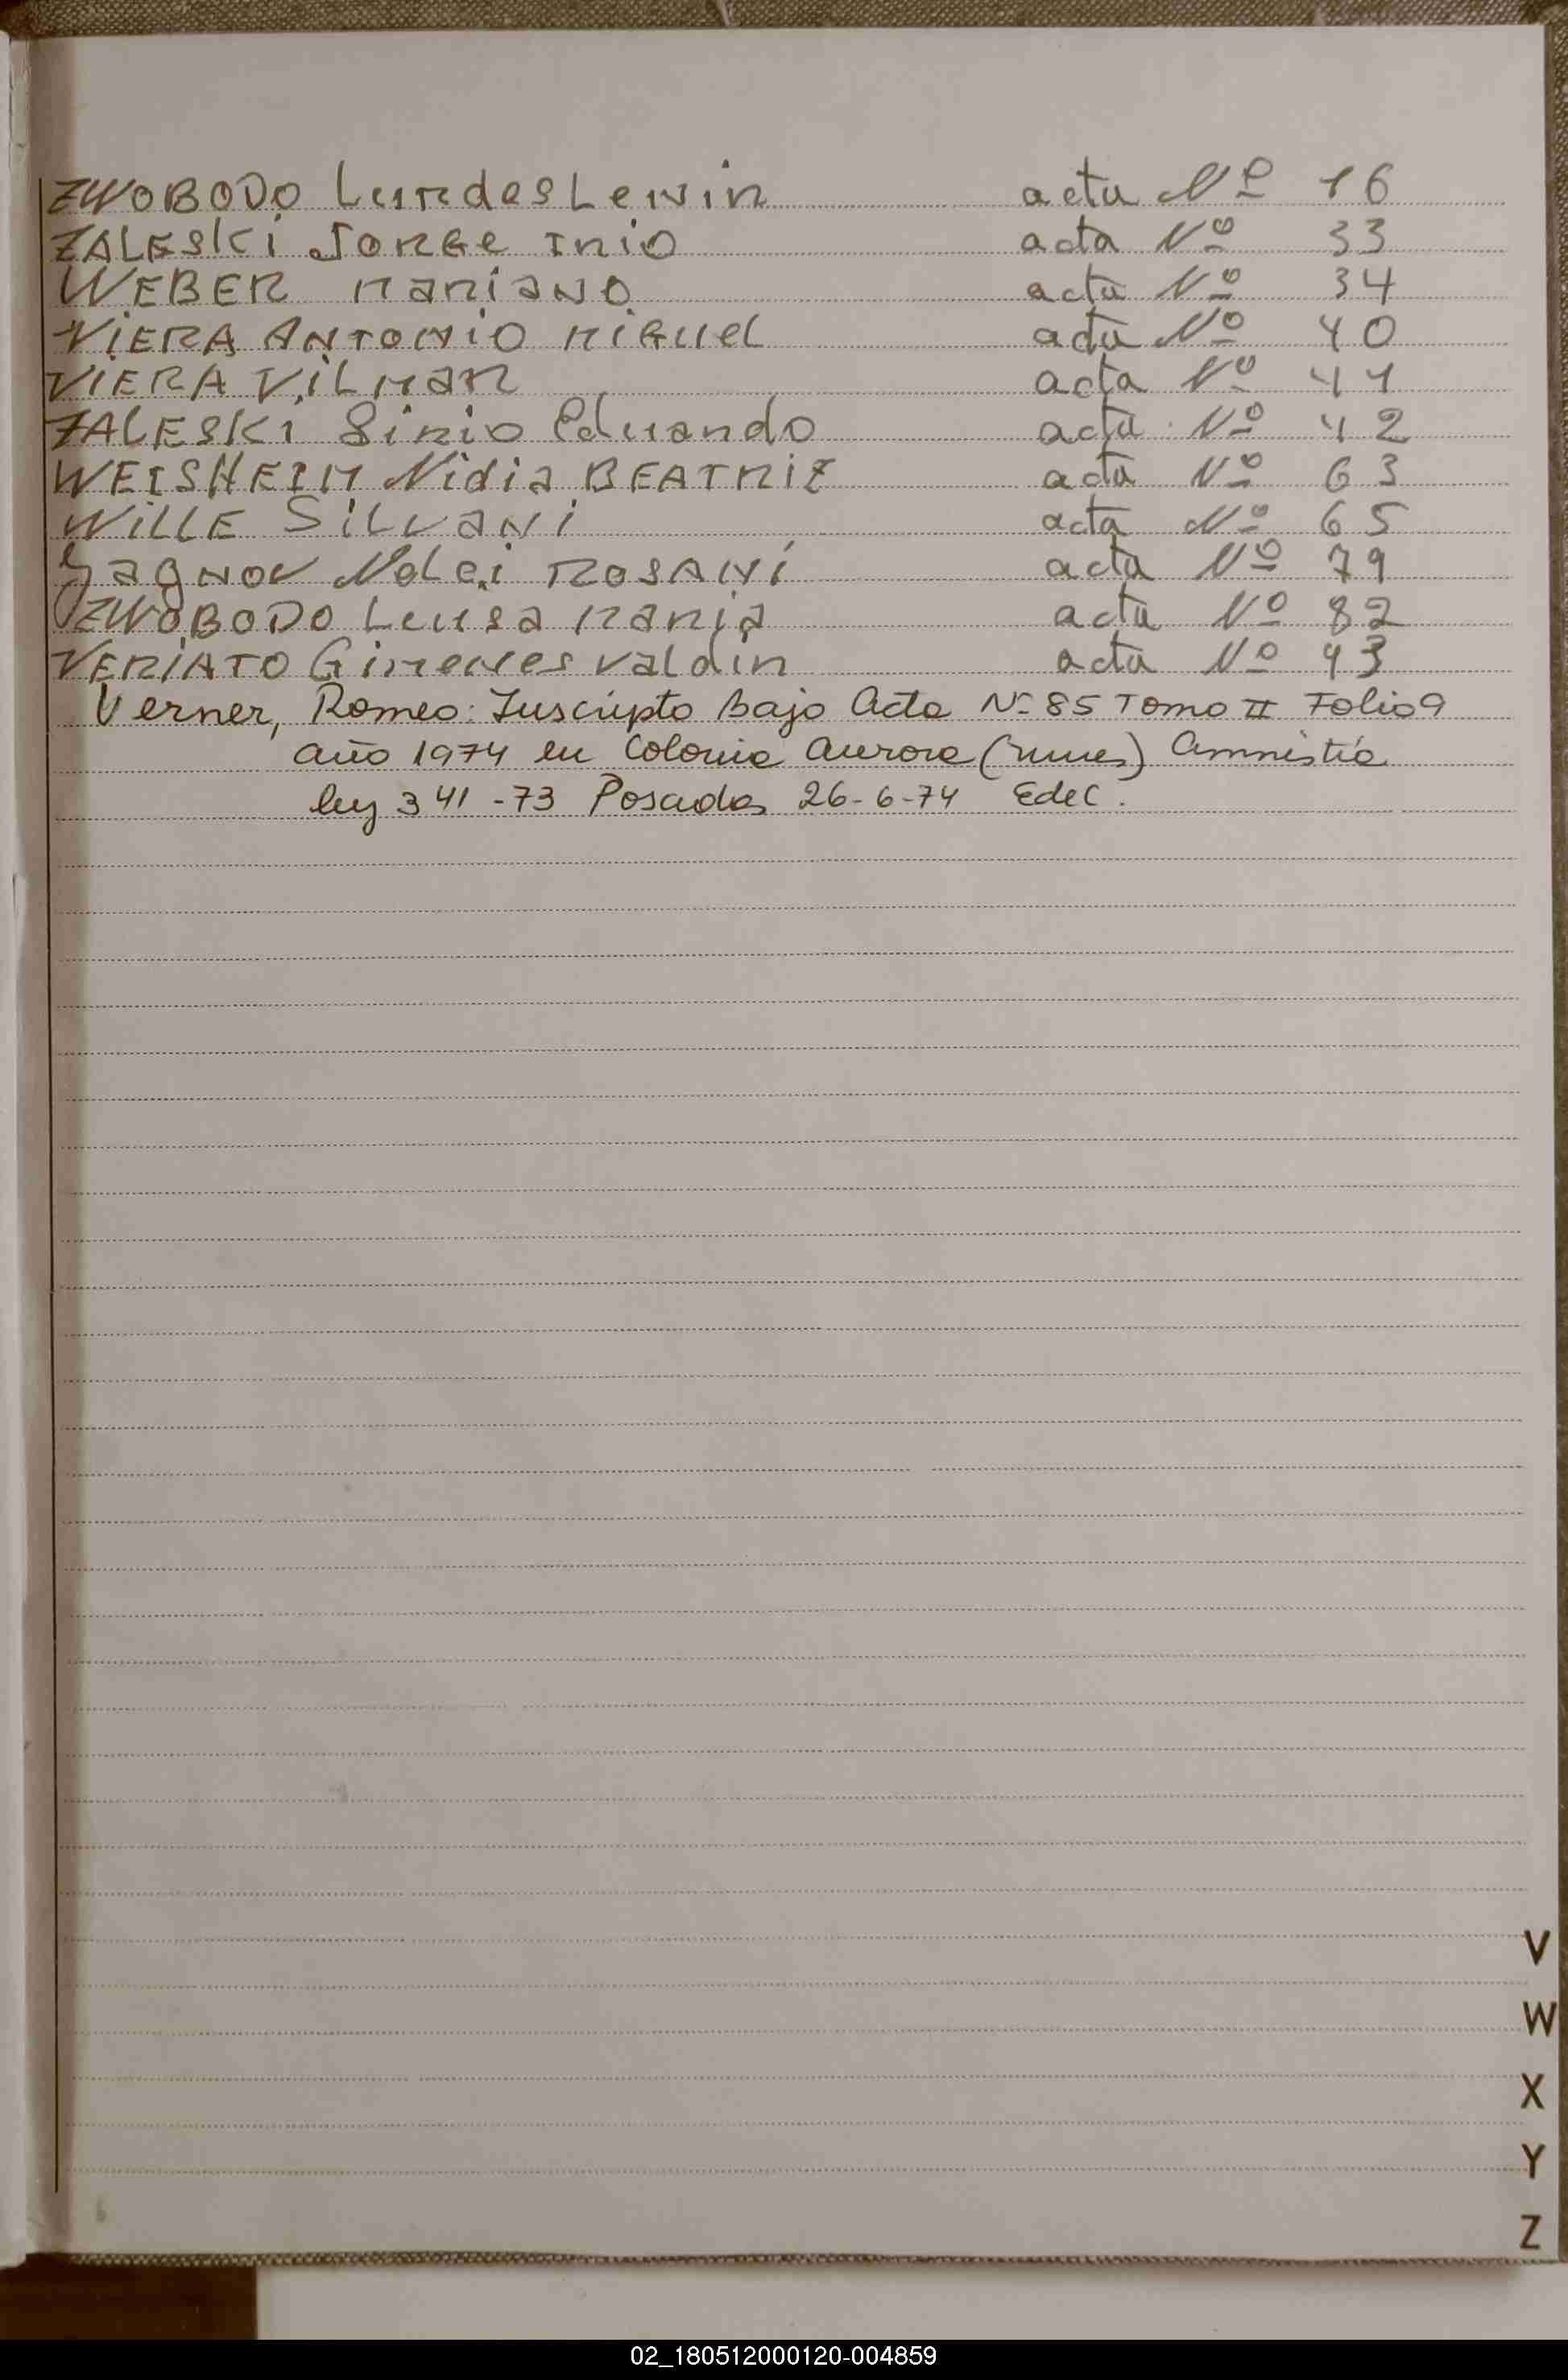 ZWOBODO Lurdes Lewin acta Nº 16
ZALESKI Jorge Irio acta Nº 33
WEBER Mariano acta Nº 34
VIERA ANTONIO Miguel acta Nº 40
VIERA Vilmar acta Nº 41
ZALESKI Sirio Eduardo acta Nº 42
WEISHEIM Nidia BEATRIZ acta Nº 63
WILLE Silvani acta Nº 65
Nolci ROSANI acta Nº 79
ZWOBODO Leusa Maria acta Nº 82
VERIATO Gimenes Valdin acta Nº 93
Verner, Romeo: Inscripto Bajo Acta Nº 85 Tomo II Folio 9
año 1974 en Colonia Aurora (mnes) Amnistía
ley 341-73 Posadas 26-6-74 EdeC.
V
W
X
Y
Z
02_180512000120-004859